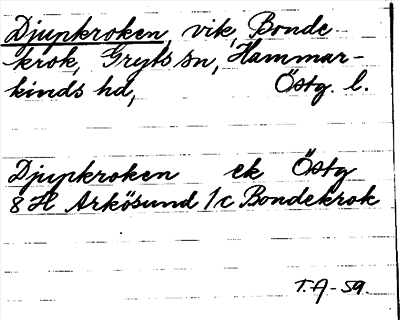 Djupkroken, vik, Bonde-
krok, Gryts sn, Hammar-
kinds hd, Östg. l.
Djupkroken ek Östg
8H Arkösund 1c Bondekrok
T.A-59.